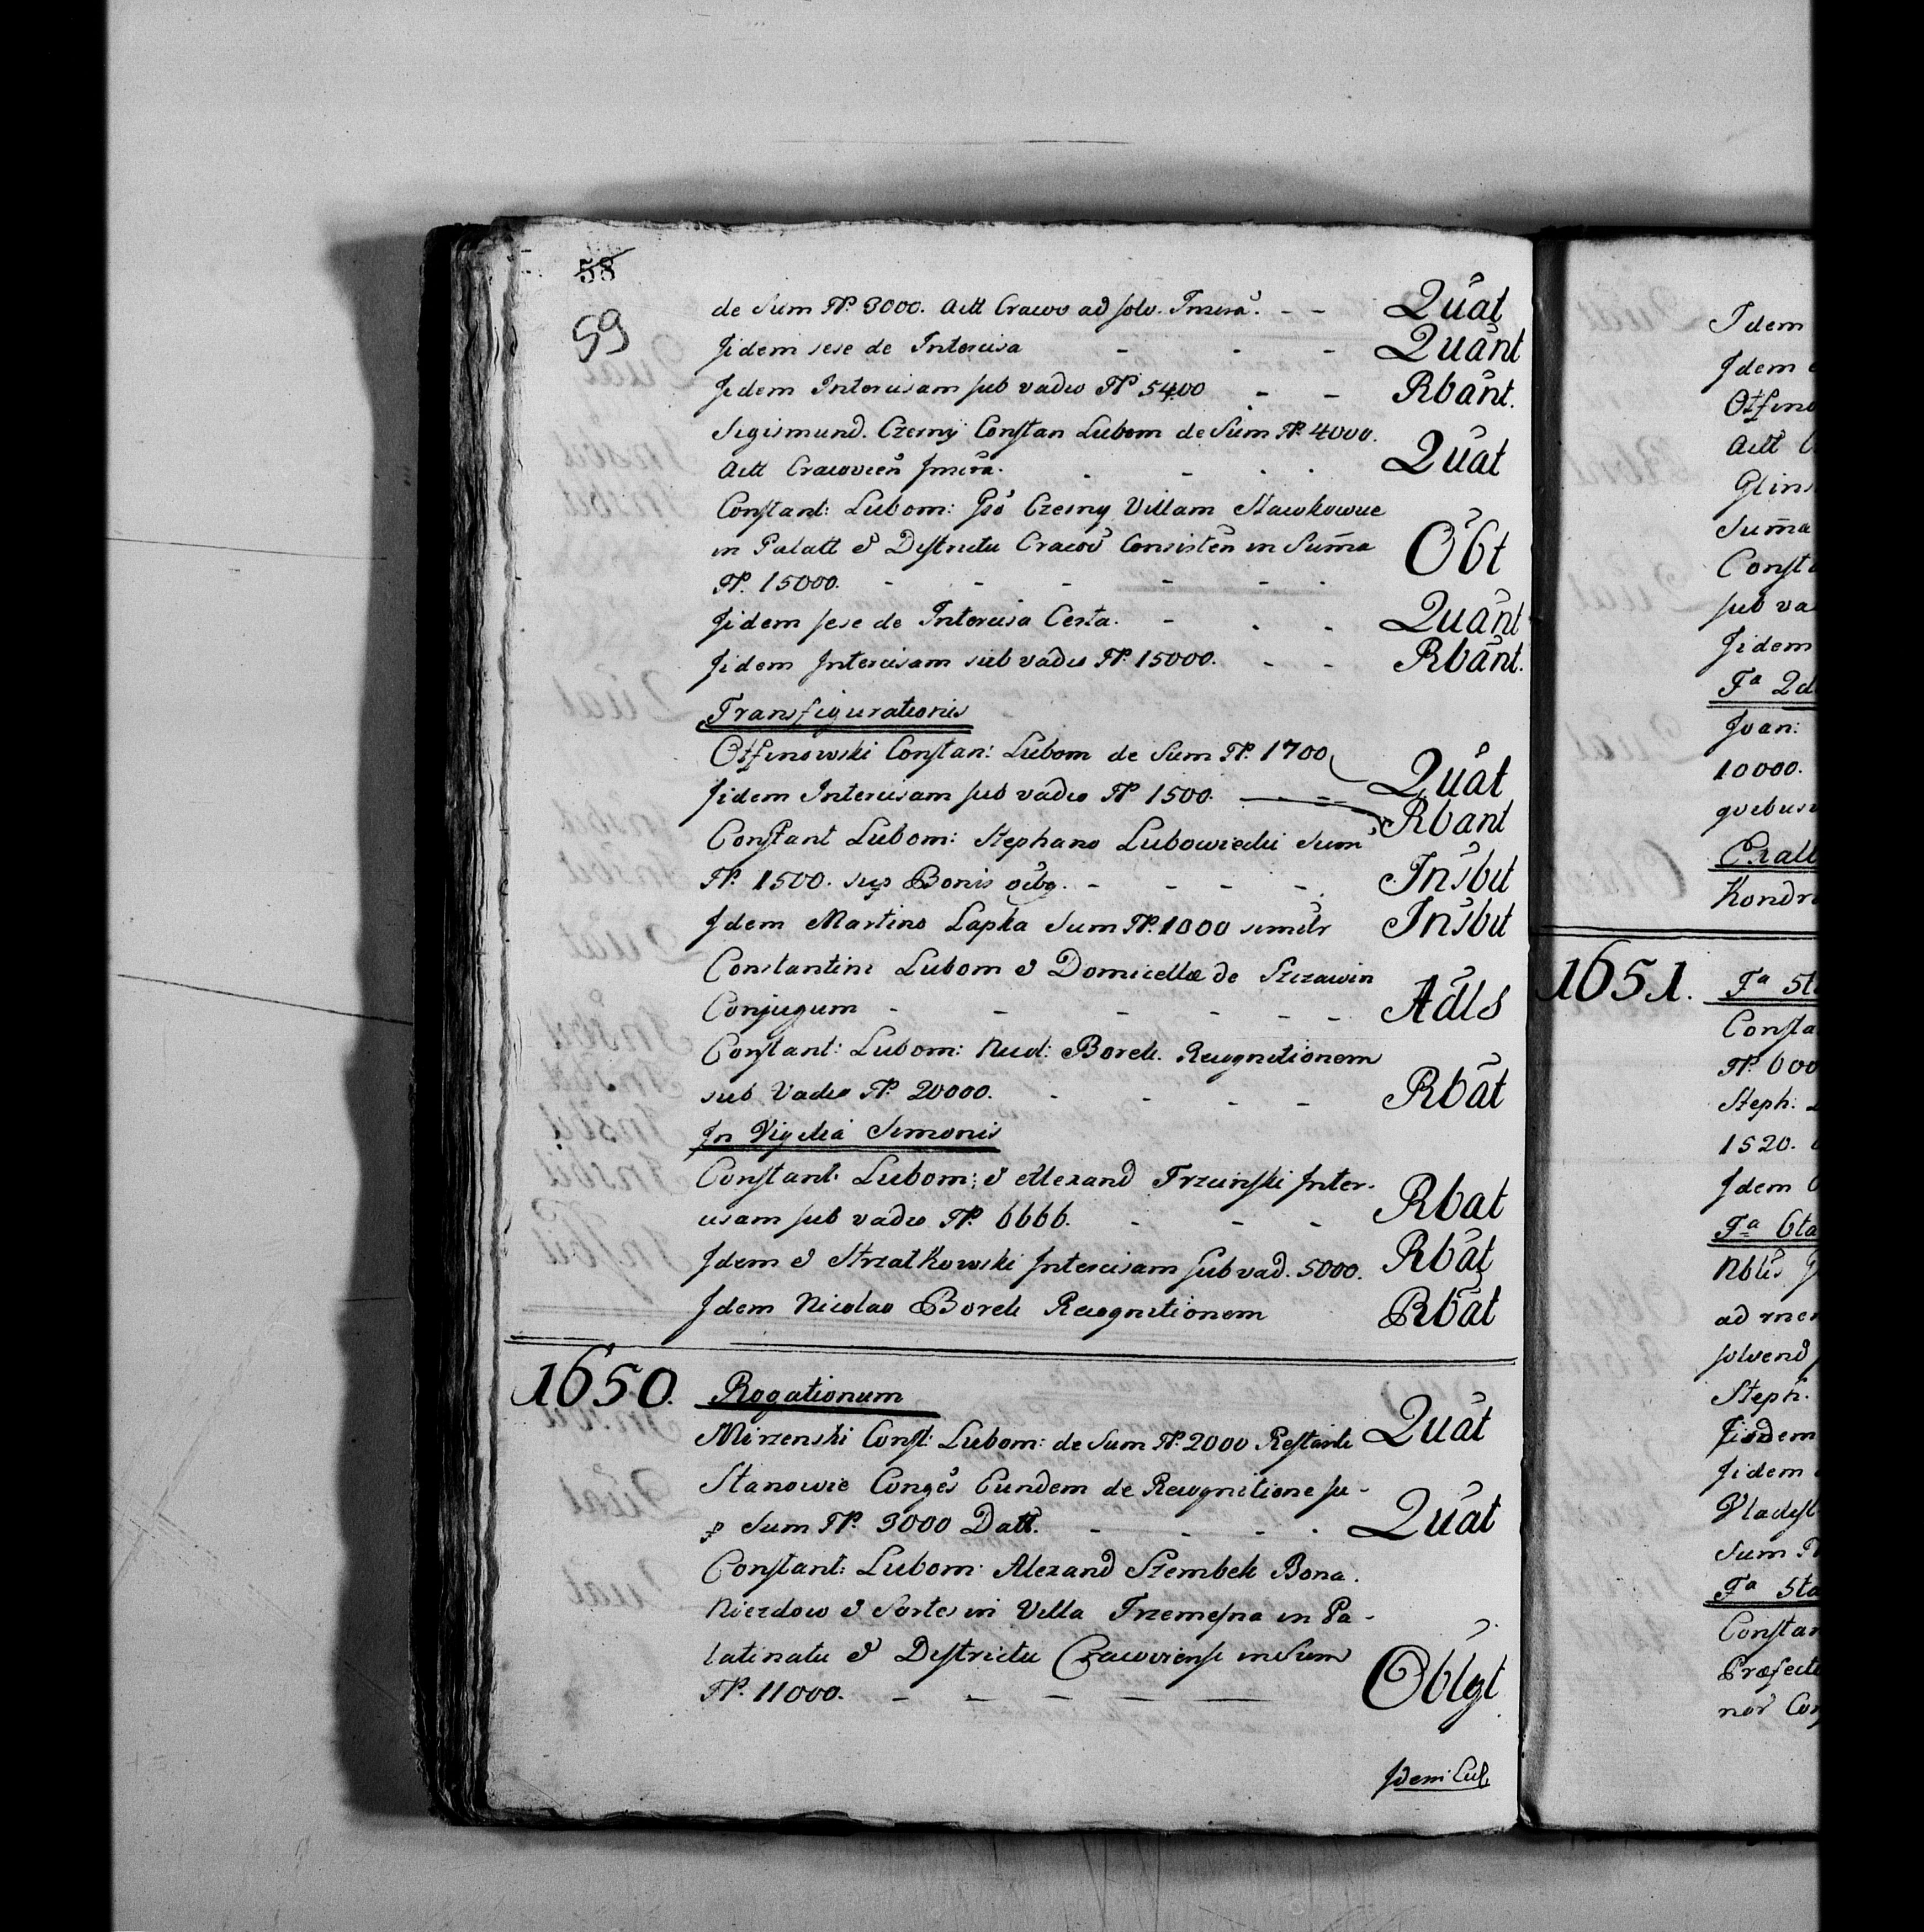 58
59
de Sum FP. 3000. Actt Cracov ad solv. Inscrã. - - Quãt
Jidem sese de Intercisa - - - Quãnt
Jidem Intercisam sub vadio FP 5400 - - Rbãnt.
Sigismund. Czerny Constan Lubom de Sum FP. 4000.
Actt Cracovien Inscrã. - - - Quãt
Constant: Lubom: Gso Czerny Villam Stawkowice
in Palatt & Districtu Cracov Consisten in Suma
FP. 15000. - - - - - Obt
Jidem sese de Intercisa Certa. - - - Quãnt
Jidem Intercisam sub vadio FP. 15000. - - Rbãnt.
Transfigurationis
Otfinowski Constan: Lubom de Sum FP. 1700 Quãt
Jidem Intercisam sub vadio FP 1500. Rbãnt
Constant Lubom: Stephano Lubowiecki Sum
FP. 1500. sup Bonis - - - - Insbit
Idem Martino Lapka Sum FP. 1000 similr Insbit
Constantini Lubom & Domicellæ de Szczawin
Conjugum - - - - - - Adls
Constant: Lubom: Nicol: Borek. Recognitionem
sub Vadio FP. 20000. - - - - Rbãt
In Vigilia Simonis
Constant: Lubom: & Alexand Trzcinski Inter-
cisam sub vadio FP. 6666. - - - Rbat
Idem & Strzałkowski Intercisam sub vad. 5000. Rbãt
Idem Nicolao Borek Recognitionem Rbãt
1650. Rogationum
Mirzenski Const: Lubom: de Sum FP. 2000 Restanti Quãt
Stanowie Conges Eundem de Recognitione su-
p Sum FP. 3000 Datt. - - - - Quãt
Constant: Lubom: Alexand Szembek Bona.
Niezdow & Sortes in Villa Trzemesna in Pa-
latinatu & Districtu Cracoviensi in Sum
FP. 11000. - - - - - Oblgt
Idem Lub
Idem
Jdem
Otfino
Actt
Glins
Suma
Const
sub va
Jidem
Fª 2d
Joan:
10000.
quibus
Kondr
1651. Fª 5t
Consta
FP. 600
Steph:
1520.
Idem
Fª 6ta
Nblis
ad
solvend
Steph.
Jisdem
Jidem
Vladysl
Sum
Fª 5ta
Constan
Præfect
nor Con